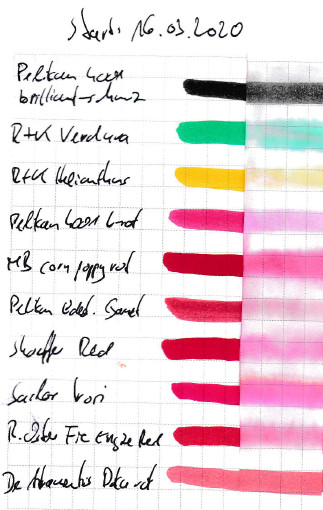 Start: 16.03.2020
Pelikan 4001
brilliant-schwarz
R+K Verdura
R+K Helianthus
Pelikan 4001 b-rot
MB corn poppy red
Pelikan Edels. Garnet
Sheaffer Red
Sailor
R. Oster Fire Engine Red
De Atramentis